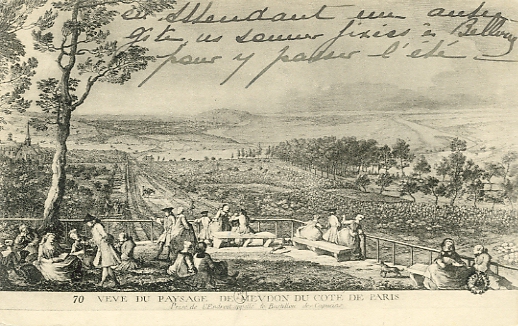 en attendant un autre
gîte us sommes fixés à Bellevue
pour y passer l'été
70 VEVE DU PAYSAGE DE MEVDON DU COTE DE PARIS
Prise de l'Endroit appellé le Bastillon des Capucins